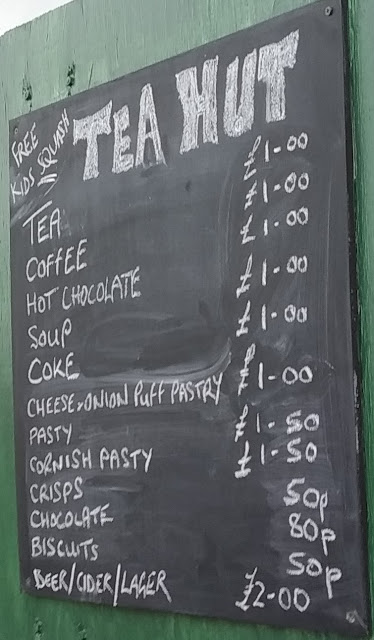 FREE KIDS SQUASH
TEA HUT
TEA £1-00
COFFEE £1-00
HOT CHOCOLATE £1-00
SOUP £1-00
COKE £1-00
CHEESE & ONION PUFF PASTRY £1-00
PASTY £1-50
CORNISH PASTY £1-50
CRISPS 50p
CHOCOLATE 80p
BISCUITS 50p
BEER/CIDER/LAGER £2-00